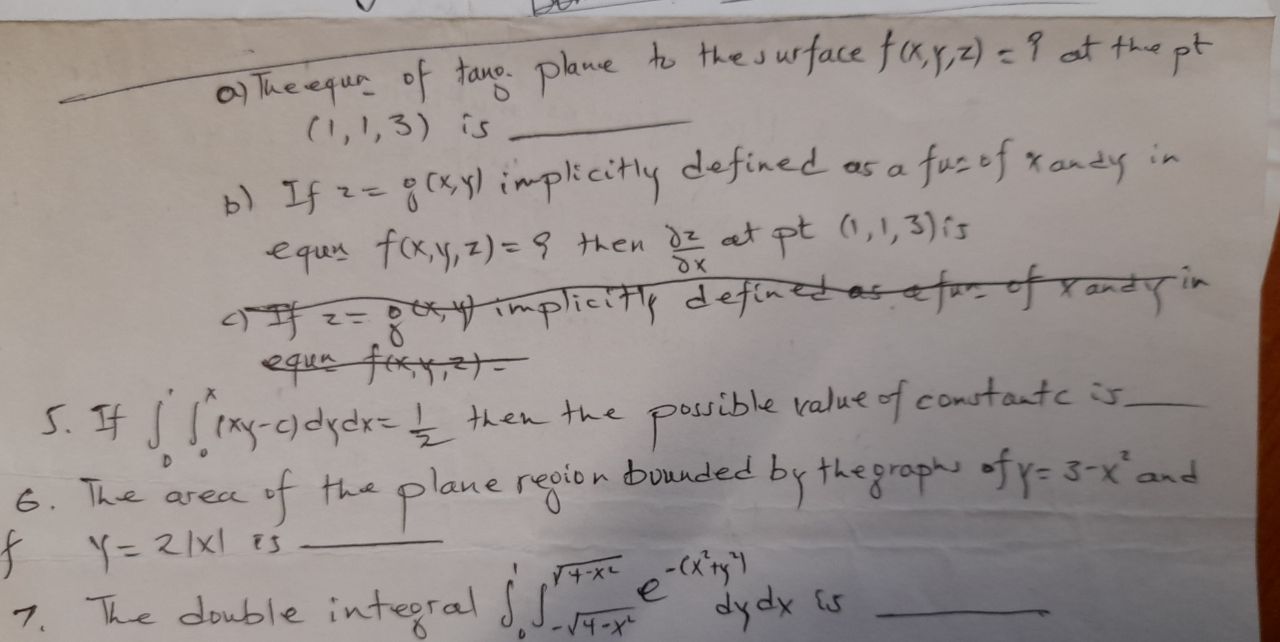 a) The equn of tang. plane to the surface f(x,y,z) = 9 at the pt
(1,1,3) is ______
b) If z = g(x,y) implicitly defined as a fun of x and y in
equn f(x,y,z) = 9 then ∂z/∂x at pt (1,1,3) is
c) If z = g(x,y) implicitly defined as a fun of x and y in
equn f(x,y,z) =
5. If ∫₀¹ ∫₀ˣ (xy-c) dy dx = 1/2 then the possible value of constant c is ____
6. The area of the plane region bounded by the graphs of y = 3-x² and
y = 2|x| is ______
7. The double integral ∫₀¹ ∫_{-√4-x²}^{√4-x²} e^{-(x²+y²)} dy dx is ______